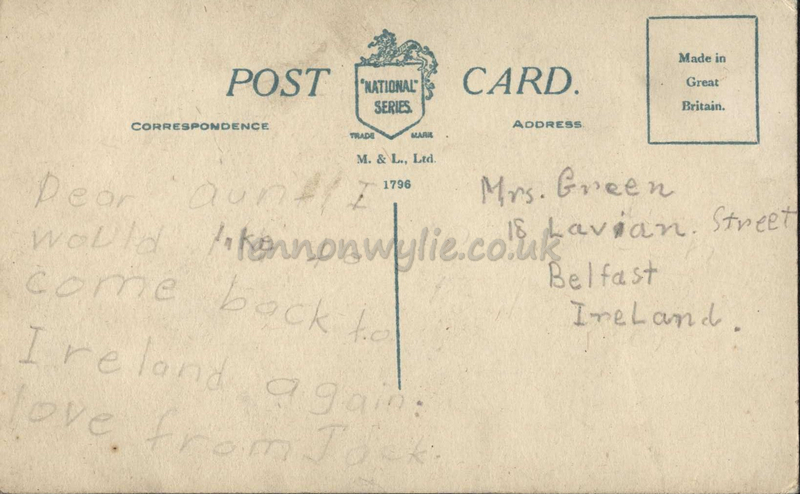 POST CARD.
"NATIONAL" SERIES.
TRADE MARK
CORRESPONDENCE
ADDRESS
Made in
Great
Britain.
M. & L., Ltd.
1796
Dear aunt I
would like to
come back to
Ireland again.
love from Jack.
Mrs. Green
18 Lavian. Street
Belfast
IreLand.
lennonwylie.co.uk